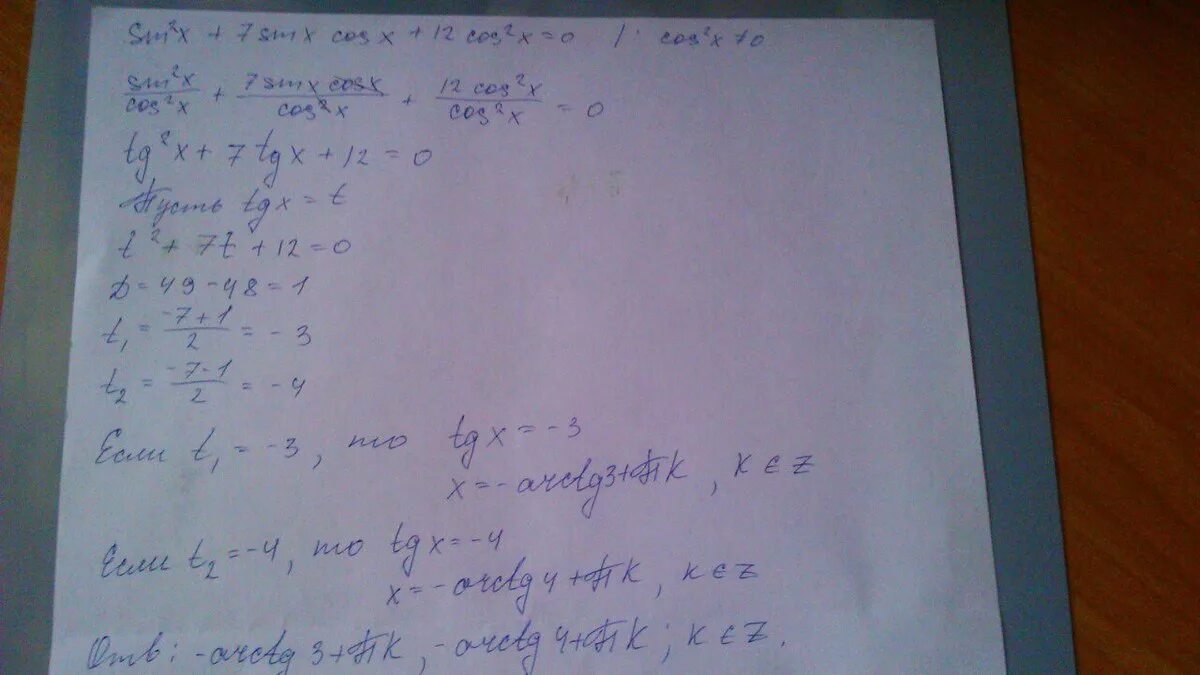 sin²x + 7 sin x cos x + 12 cos²x = 0 / : cos²x ≠ 0
sin²x/cos²x + 7 sin x cos x/cos²x + 12 cos²x/cos²x = 0
tg²x + 7 tg x + 12 = 0
Пусть tg x = t
t² + 7t + 12 = 0
D = 49 - 48 = 1
t₁ = (-7+1)/2 = -3
t₂ = (-7-1)/2 = -4
Если t₁ = -3, то tg x = -3
x = -arctg 3 + πk, k ∈ Z
Если t₂ = -4, то tg x = -4
x = -arctg 4 + πk, k ∈ Z
Отв: -arctg 3 + πk, -arctg 4 + πk; k ∈ Z.